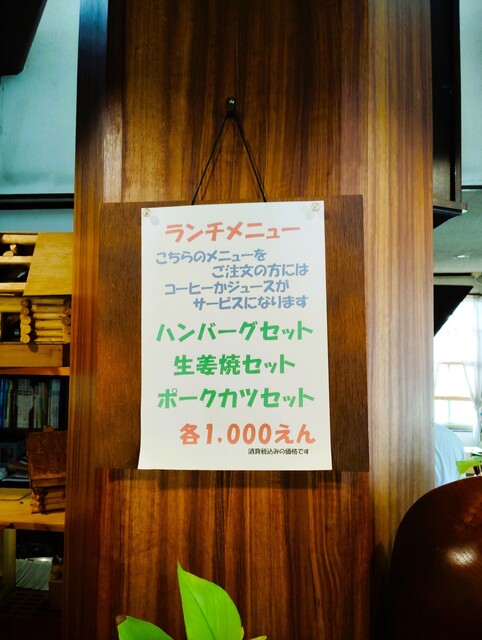 ランチメニュー
こちらのメニューを
ご注文の方には
コーヒーかジュースが
サービスになります
ハンバーグセット
生姜焼セット
ポークカツセット
各1,000えん
消費税込みの価格です